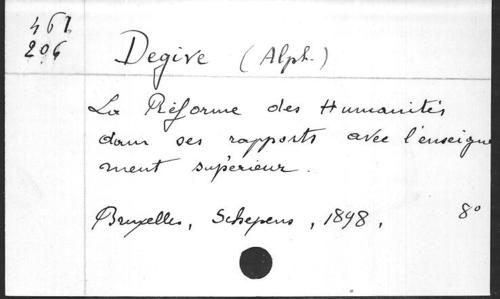 461
206
Degive (Alph.)
La Réforme des Humanités
dans ses rapports avec l'enseigne
ment supérieur.
Bruxelles, Schepens, 1898, 8°